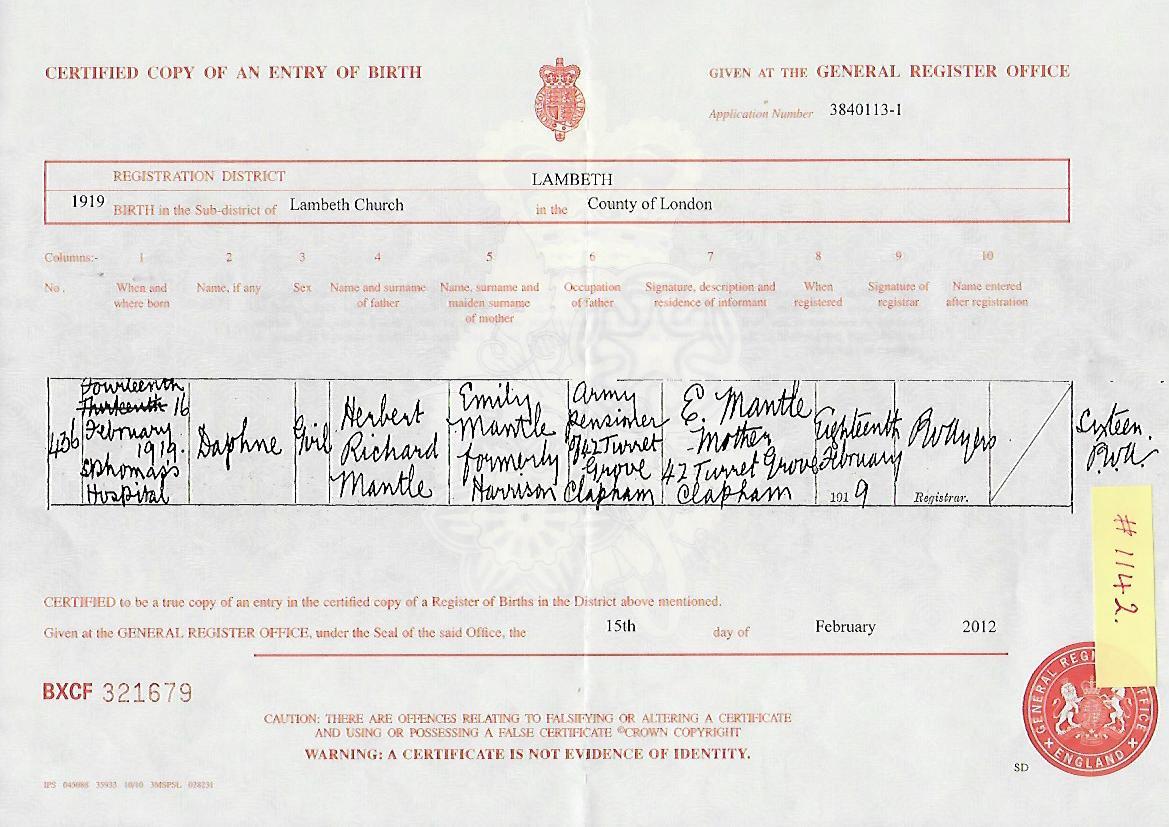 CERTIFIED COPY OF AN ENTRY OF BIRTH
GIVEN AT THE GENERAL REGISTER OFFICE
Application Number 3840113-1
REGISTRATION DISTRICT LAMBETH
1919 BIRTH in the Sub-district of Lambeth Church in the County of London
Columns:- 1 2 3 4 5 6 7 8 9 10
No. When and where born Name, if any Sex Name and surname of father Name, surname and maiden surname of mother Occupation of father Signature, description and residence of informant When registered Signature of registrar Name entered after registration
436
Fourteenth
Thirteenth 16
February
1919.
St Thomas's
Hospital
Daphne
Girl
Herbert
Richard
Mantle
Emily
Mantle
formerly
Harrison
Army
Pensioner
of 42 Turret
Grove
Clapham
E. Mantle
Mother
42 Turret Grove
Clapham
Eighteenth
February
1919
Registrar.
Sixteen.
CERTIFIED to be a true copy of an entry in the certified copy of a Register of Births in the District above mentioned.
Given at the GENERAL REGISTER OFFICE, under the Seal of the said Office, the 15th day of February 2012
BXCF 321679
CAUTION: THERE ARE OFFENCES RELATING TO FALSIFYING OR ALTERING A CERTIFICATE
AND USING OR POSSESSING A FALSE CERTIFICATE ©CROWN COPYRIGHT
WARNING: A CERTIFICATE IS NOT EVIDENCE OF IDENTITY.
SD
#1142.
GENERAL REG
FFICE
ENGLAND